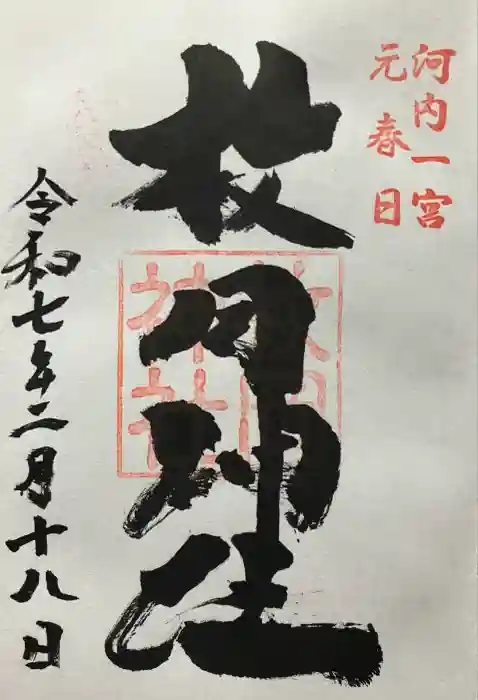 河内一宮
元春日
枚岡神社
枚岡神社
令和七年二月十八日